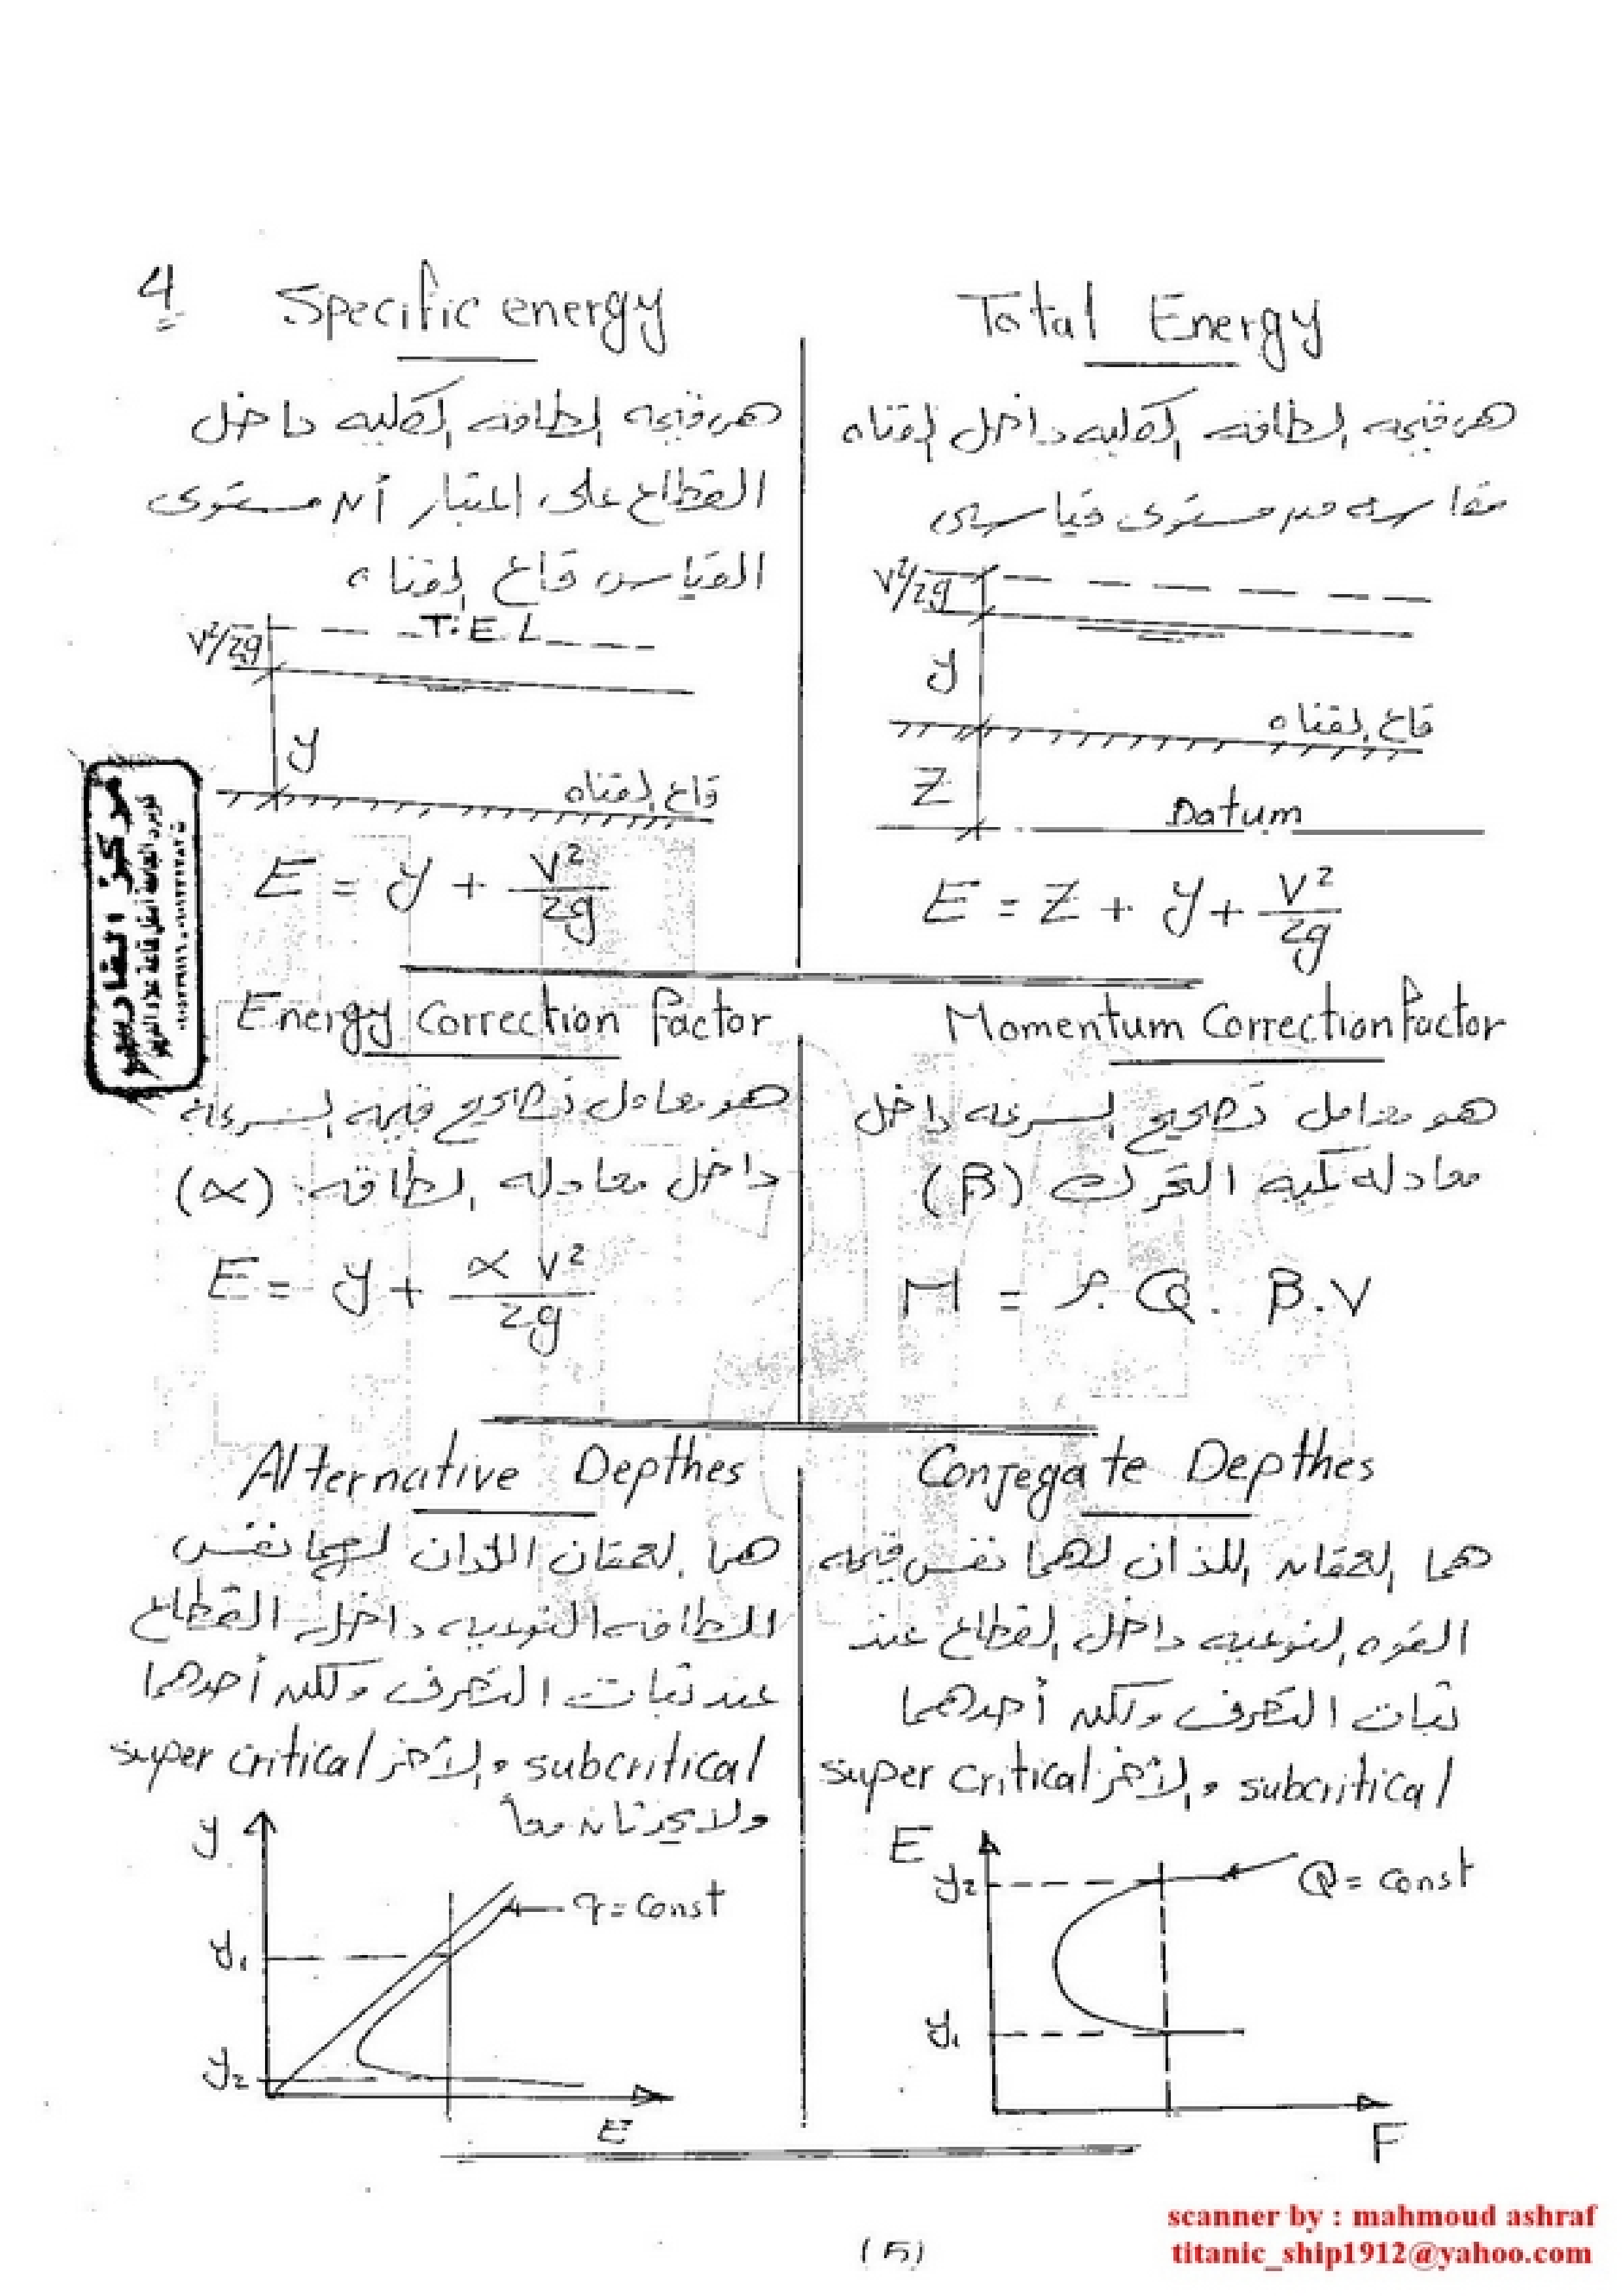 4
Specific energy
هى قيمه الطاقه الكليه داخل
القطاع على اعتبار أن مستوى
القياس قاع القناه
T.E.L
V²/2g
y
قاع القناه
E = y + V²/2g
Total Energy
هى قيمه الطاقه الكليه داخل القناه
مقاسه من مستوى قياسى
V²/2g
y
قاع القناه
Z
Datum
E = Z + y + V²/2g
مركز الفارس
Energy Correction Factor
هو معامل تصحيح قيمه السرعه
داخل معادله الطاقه (α)
E = y + α V²/2g
Momentum Correction Factor
هو معامل تصحيح السرعه داخل
معادله كميه التحرك (β)
M = ρ. Q. β. V
Alternative Depthes
هما العمقان اللذان لهما نفس
الطاقه النوعيه داخل القطاع
عند ثبات التصرف ولكن أحدهما
subcritical والآخر super critical
ولا يحدثان معاً
y
q = Const
y₁
y₂
E
Conjegate Depthes
هما العمقان اللذان لهما نفس قيمه
القوه النوعيه داخل القطاع عند
ثبات التصرف ولكن أحدهما
subcritical والآخر super critical
E
y₂
Q = Const
y₁
F
(5)
scanner by : mahmoud ashraf
titanic_ship1912@yahoo.com